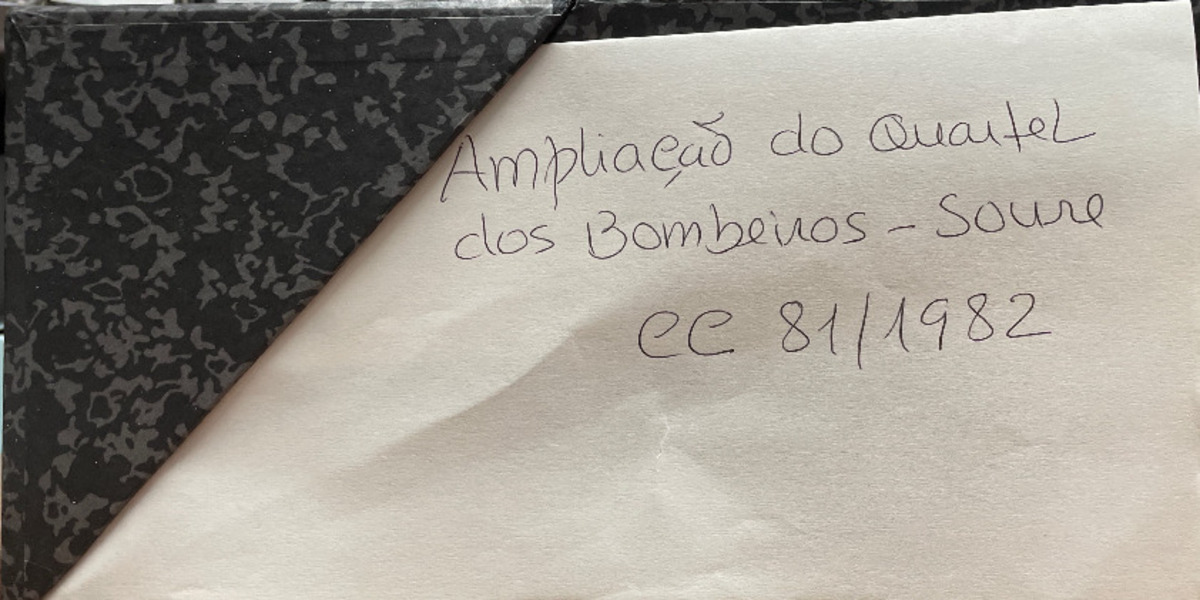 Ampliação do Quartel
dos Bombeiros - Soure
CC 81/1982